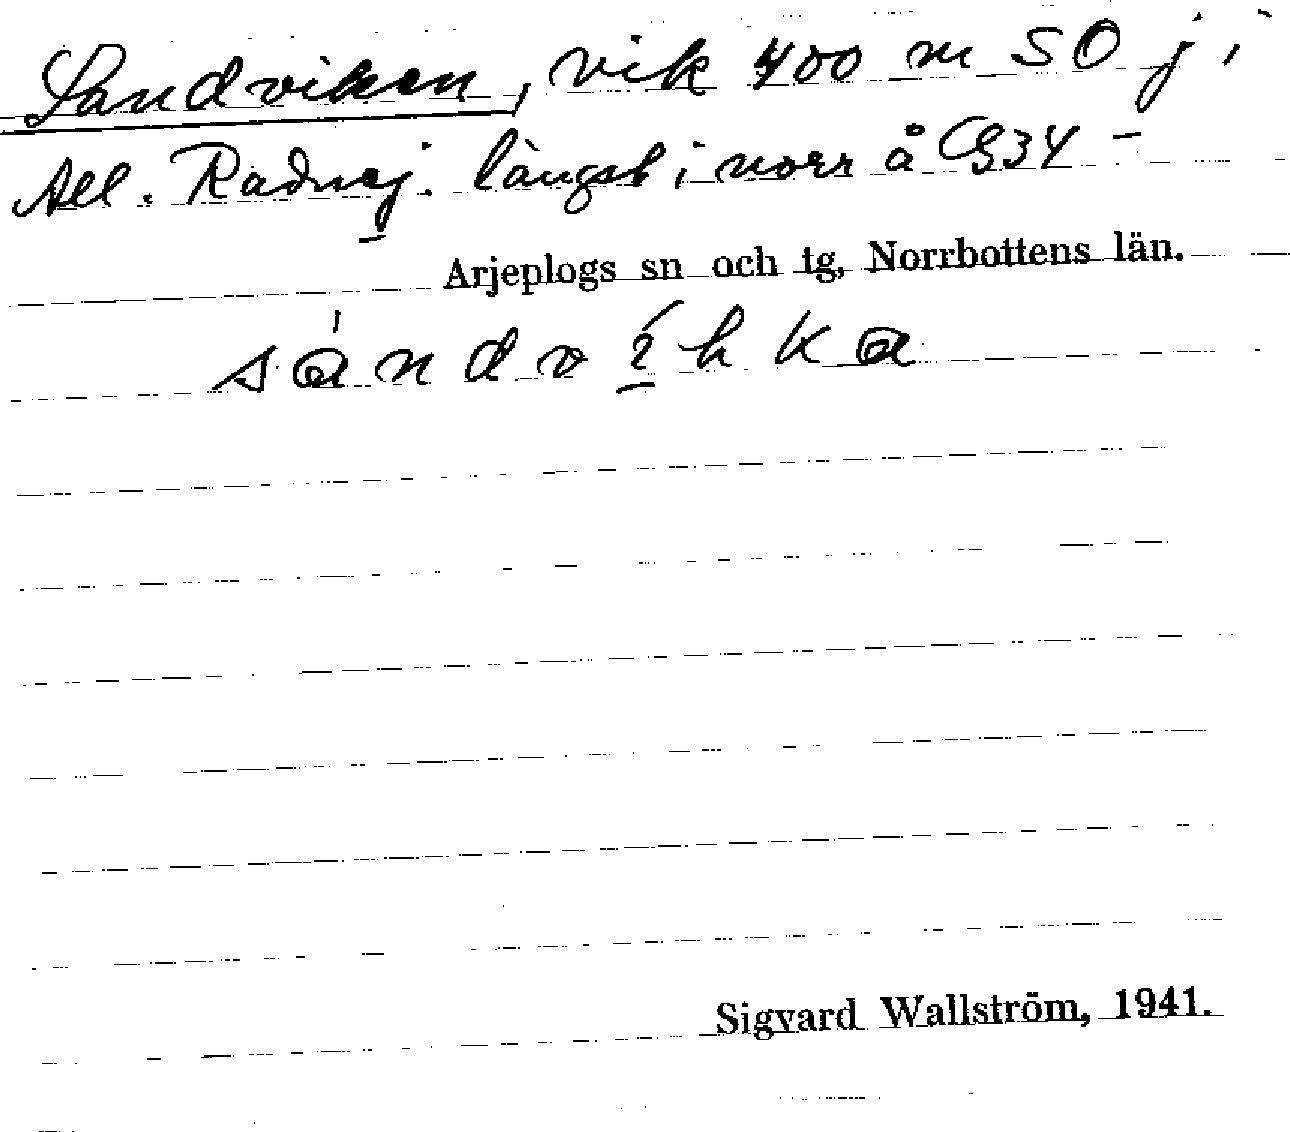 Sandviken, vik 400 m SO j i
All. Radnej. längst i norr å G34 -
Arjeplogs sn och tg, Norrbottens län.
sándvíhka
Sigvard Wallström, 1941.